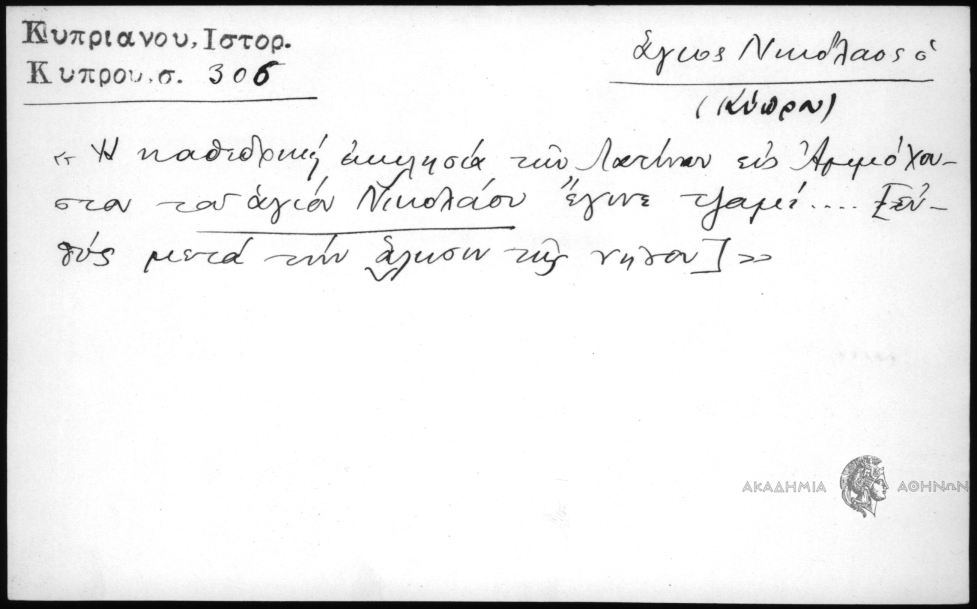 Κυπριανου, Ιστορ.
Κυπρου, σ. 306
Ἅγιος Νικόλαος ὁ
(Κύπρου)
« Ἡ καθεδρική ἐκκλησία τῶν Λατίνων εἰς Ἀμμόχου-
στον τοῦ ἁγίου Νικολάου ἔγινε τζαμί .... [εὐ-
θύς μετά τήν ἅλωσιν τῆς νήσου] »
ΑΚΑΔΗΜΙΑ ΑΘΗΝΩΝ